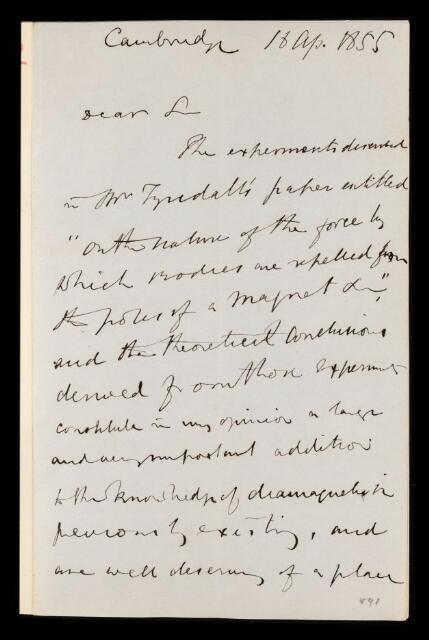 Cambridge 18 Ap. 1855
Dear Sir
The experiments described
in Mr Tyndall's paper entitled
"On the nature of the force by
which bodies are repelled from
the poles of a Magnet &c",
and the theoretical Conclusions
derived from those experiments
constitute in my opinion a large
and very important addition
to the knowledge of diamagnetism
previously existing, and
are well deserving of a place